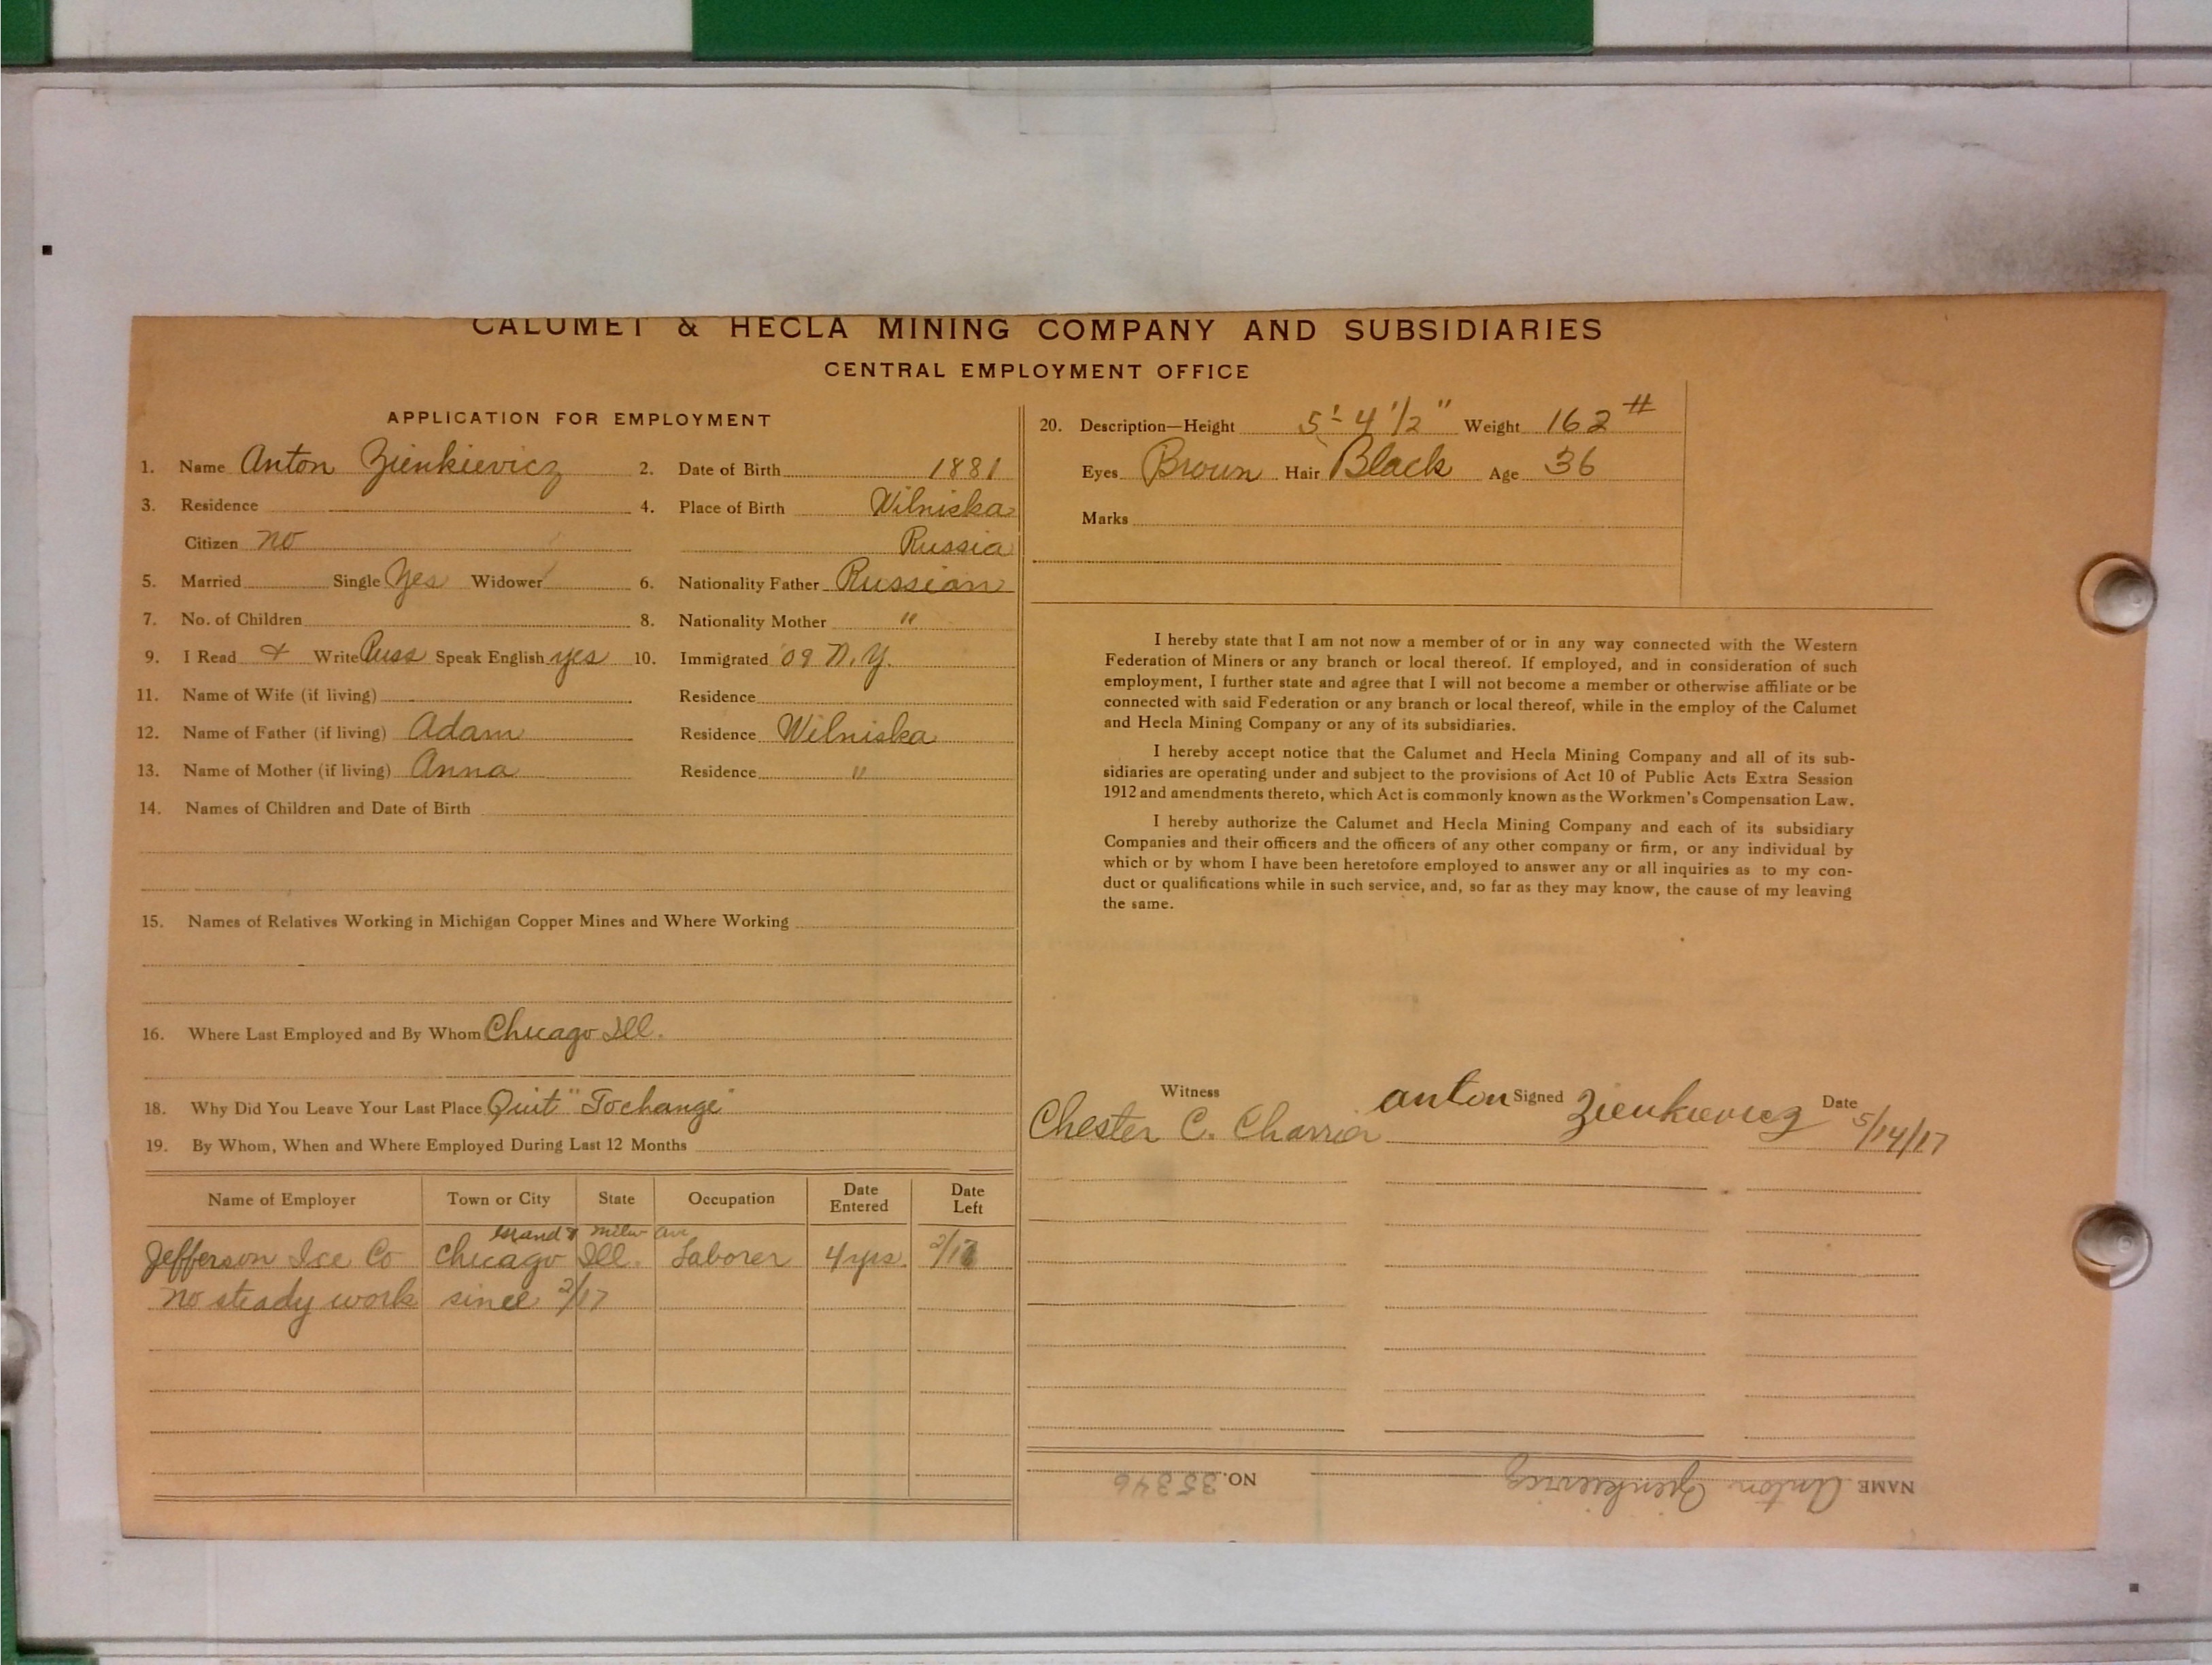 CALUMET & HECLA MINING COMPANY AND SUBSIDIARIES
CENTRAL EMPLOYMENT OFFICE
APPLICATION FOR EMPLOYMENT
1. Name Anton Zienkievicz 2. Date of Birth 1881
3. Residence 4. Place of Birth Wilniska
Citizen no Russia
5. Married Single Yes Widower 6. Nationality Father Russian
7. No. of Children 8. Nationality Mother "
9. I Read + Write Russ Speak English yes 10. Immigrated '09 N.Y.
11. Name of Wife (if living) Residence
12. Name of Father (if living) Adam Residence Wilniska
13. Name of Mother (if living) Anna Residence "
14. Names of Children and Date of Birth
15. Names of Relatives Working in Michigan Copper Mines and Where Working
16. Where Last Employed and By Whom Chicago Ill.
18. Why Did You Leave Your Last Place Quit "To change"
19. By Whom, When and Where Employed During Last 12 Months
Name of Employer Town or City State Occupation Date Entered Date Left
milw ave
Jefferson Ice Co Chicago Ill. Laborer 4 yrs. 2/17
no steady work since 2/17
20. Description—Height 5'-4 1/2" Weight 162 #
Eyes Brown Hair Black Age 36
Marks
I hereby state that I am not now a member of or in any way connected with the Western
Federation of Miners or any branch or local thereof. If employed, and in consideration of such
employment, I further state and agree that I will not become a member or otherwise affiliate or be
connected with said Federation or any branch or local thereof, while in the employ of the Calumet
and Hecla Mining Company or any of its subsidiaries.
I hereby accept notice that the Calumet and Hecla Mining Company and all of its sub-
sidiaries are operating under and subject to the provisions of Act 10 of Public Acts Extra Session
1912 and amendments thereto, which Act is commonly known as the Workmen's Compensation Law.
I hereby authorize the Calumet and Hecla Mining Company and each of its subsidiary
Companies and their officers and the officers of any other company or firm, or any individual by
which or by whom I have been heretofore employed to answer any or all inquiries as to my con-
duct or qualifications while in such service, and, so far as they may know, the cause of my leaving
the same.
Witness Signed Date
Chester C. Charrier anton Zienkievicz 5/14/17
NAME Anton Zienkievicz NO. 35346